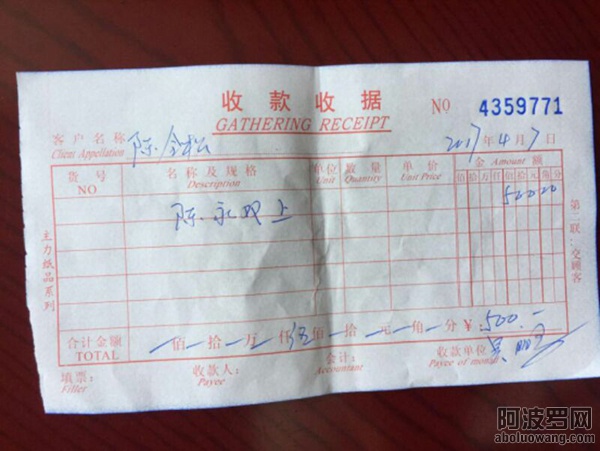 收款收据
GATHERING RECEIPT
NO 4359771
客户名称 陈金松
Client Appellation
2017年4月7日
货号 名称及规格 单位 数量 单价 金 Amount 额
NO Description Unit Quantity Unit Price 佰拾万仟佰拾元角分
陈永 上 50000
主力纸品系列
第二联:交顾客
合计金额 佰拾万仟伍佰拾元角分 ¥:500.-
TOTAL
填票: 收款人: 会计: 收款单位
Filler Payee Accountant Payee of month
阿波罗网
aboluowang.com